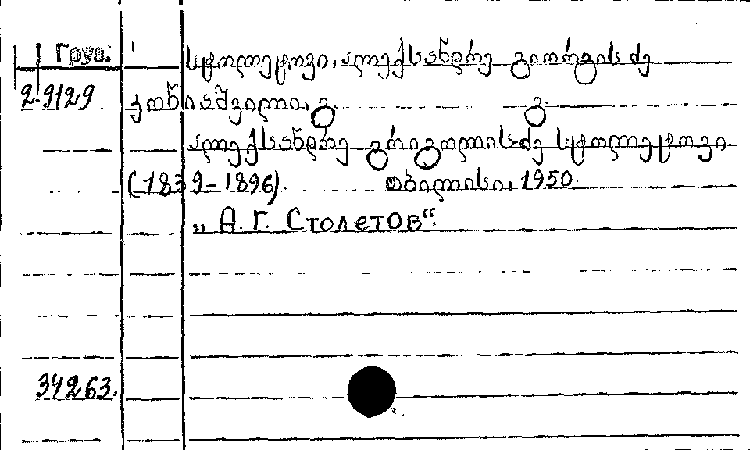 Груз.
სტოლეტოვი, ალექსანდრე გიორგის ძე
2-9129 კონიაშვილი, გ. გ.
ალექსანდრე გრიგოლისძე სტოლეტოვი
(1839-1896). თბილისი, 1950.
„А. Г. Столетов“.
34263.